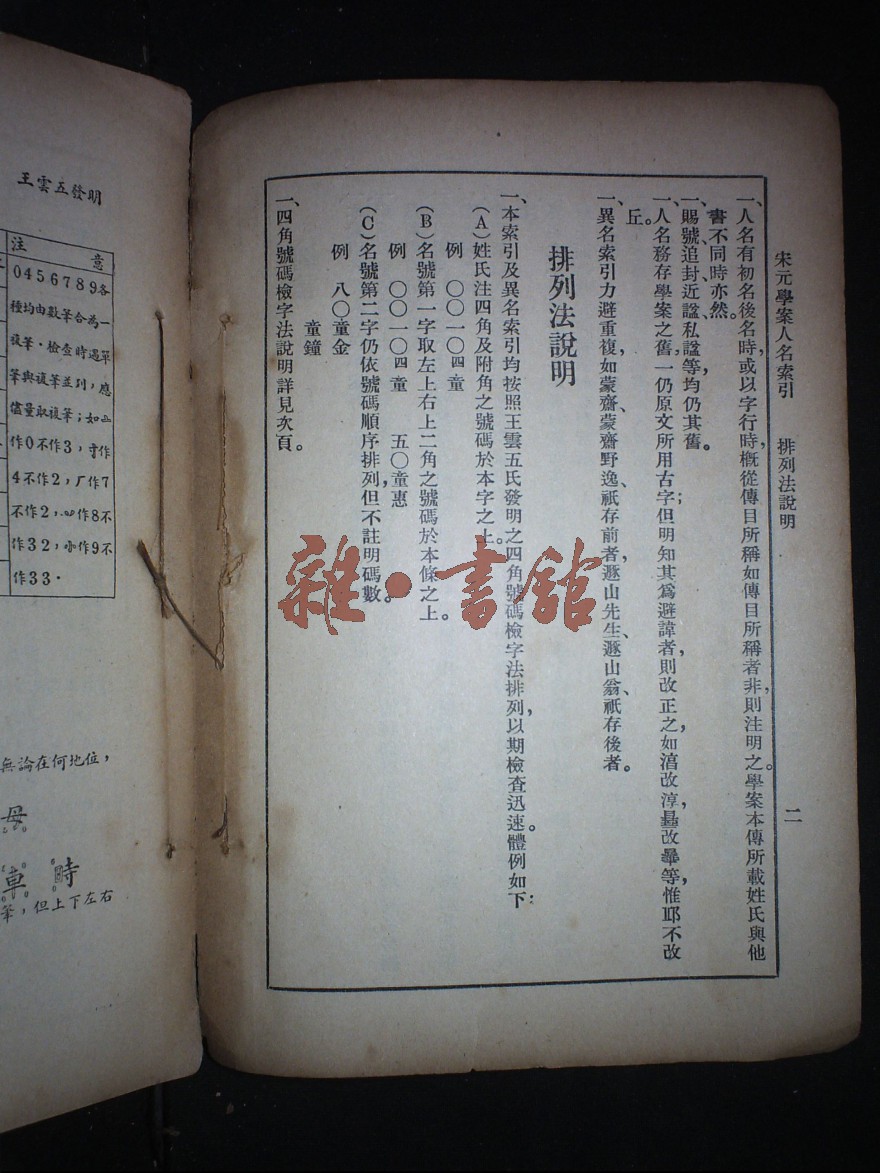 宋元學案人名索引　排列法說明　二
一、人名有初名後名時，或以字行時，概從傳目所稱，如傳目所稱者非，則注明之。學案本傳所載姓氏與他
書不同時亦然。
一、賜號、追封、近諡、私諡等，均仍其舊。
一、人名務存學案之舊，一仍原文所用古字；但明知其爲避諱者，則改正之，如湻改淳，改畢等，惟耶不改
丘。
一、異名索引力避重複，如蒙齋、蒙齋野逸，祇存前者，遯山先生、遯山翁，祇存後者。
排列法說明
一、本索引及異名索引均按照王雲五氏發明之四角號碼檢字法排列，以期檢查迅速。體例如下：
（A）姓氏注四角及附角之號碼於本字之上。
例　〇〇一〇四童
（B）名號第一字取左上右上二角之號碼於本條之上。
例　〇〇一〇四童　五〇童惠
（C）名號第二字仍依號碼順序排列，但不註明碼數。
例　八〇童金
童鐘
一、四角號碼檢字法說明詳見次頁。
王雲五發明
注意
0456789各
種均由數筆合為一
複筆·檢查時遇單
筆與複筆並列，應
儘量取複筆；如
作0不作3，寸作
4不作2，厂作7
不作2，作8不
作32，小作9不
作33·
無論在何地位，
母
車 時
筆，但上下左右
雜·書館